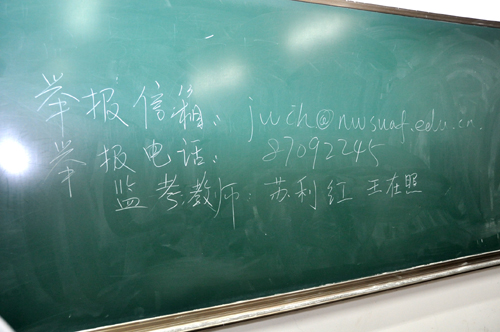 举报信箱: jwch@nwsuaf.edu.cn.
举报电话: 87092245
监考教师: 苏利红 王在照